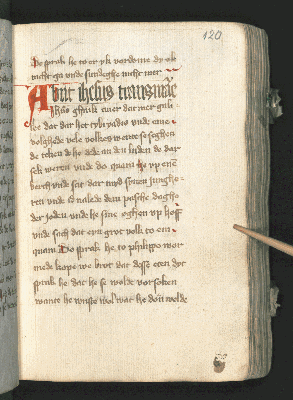 120
De sprak he to er yk vordome dy ok
nicht ga unde sundeghe nicht mer
Abiit ihesus trans mare
Ihesus ghink over dat mer galilee
dat dar het tyberyadis unde eme
volghede vele volkes wente se seghen
de teken de he dede an den luden de
seek weren unde do quam he up enen
berch unde sat dar myd synen jungheren
unde id nalede dem pasche daghe
der joden unde he hof syne oghen up
unde sach dat eyn grot volk to em
quam Do sprak he to philippo wor
mede kope we brot dat desse eten dyt
sprak he dat he se wolde vorsoken
wante he wuste wol wat he don wolde